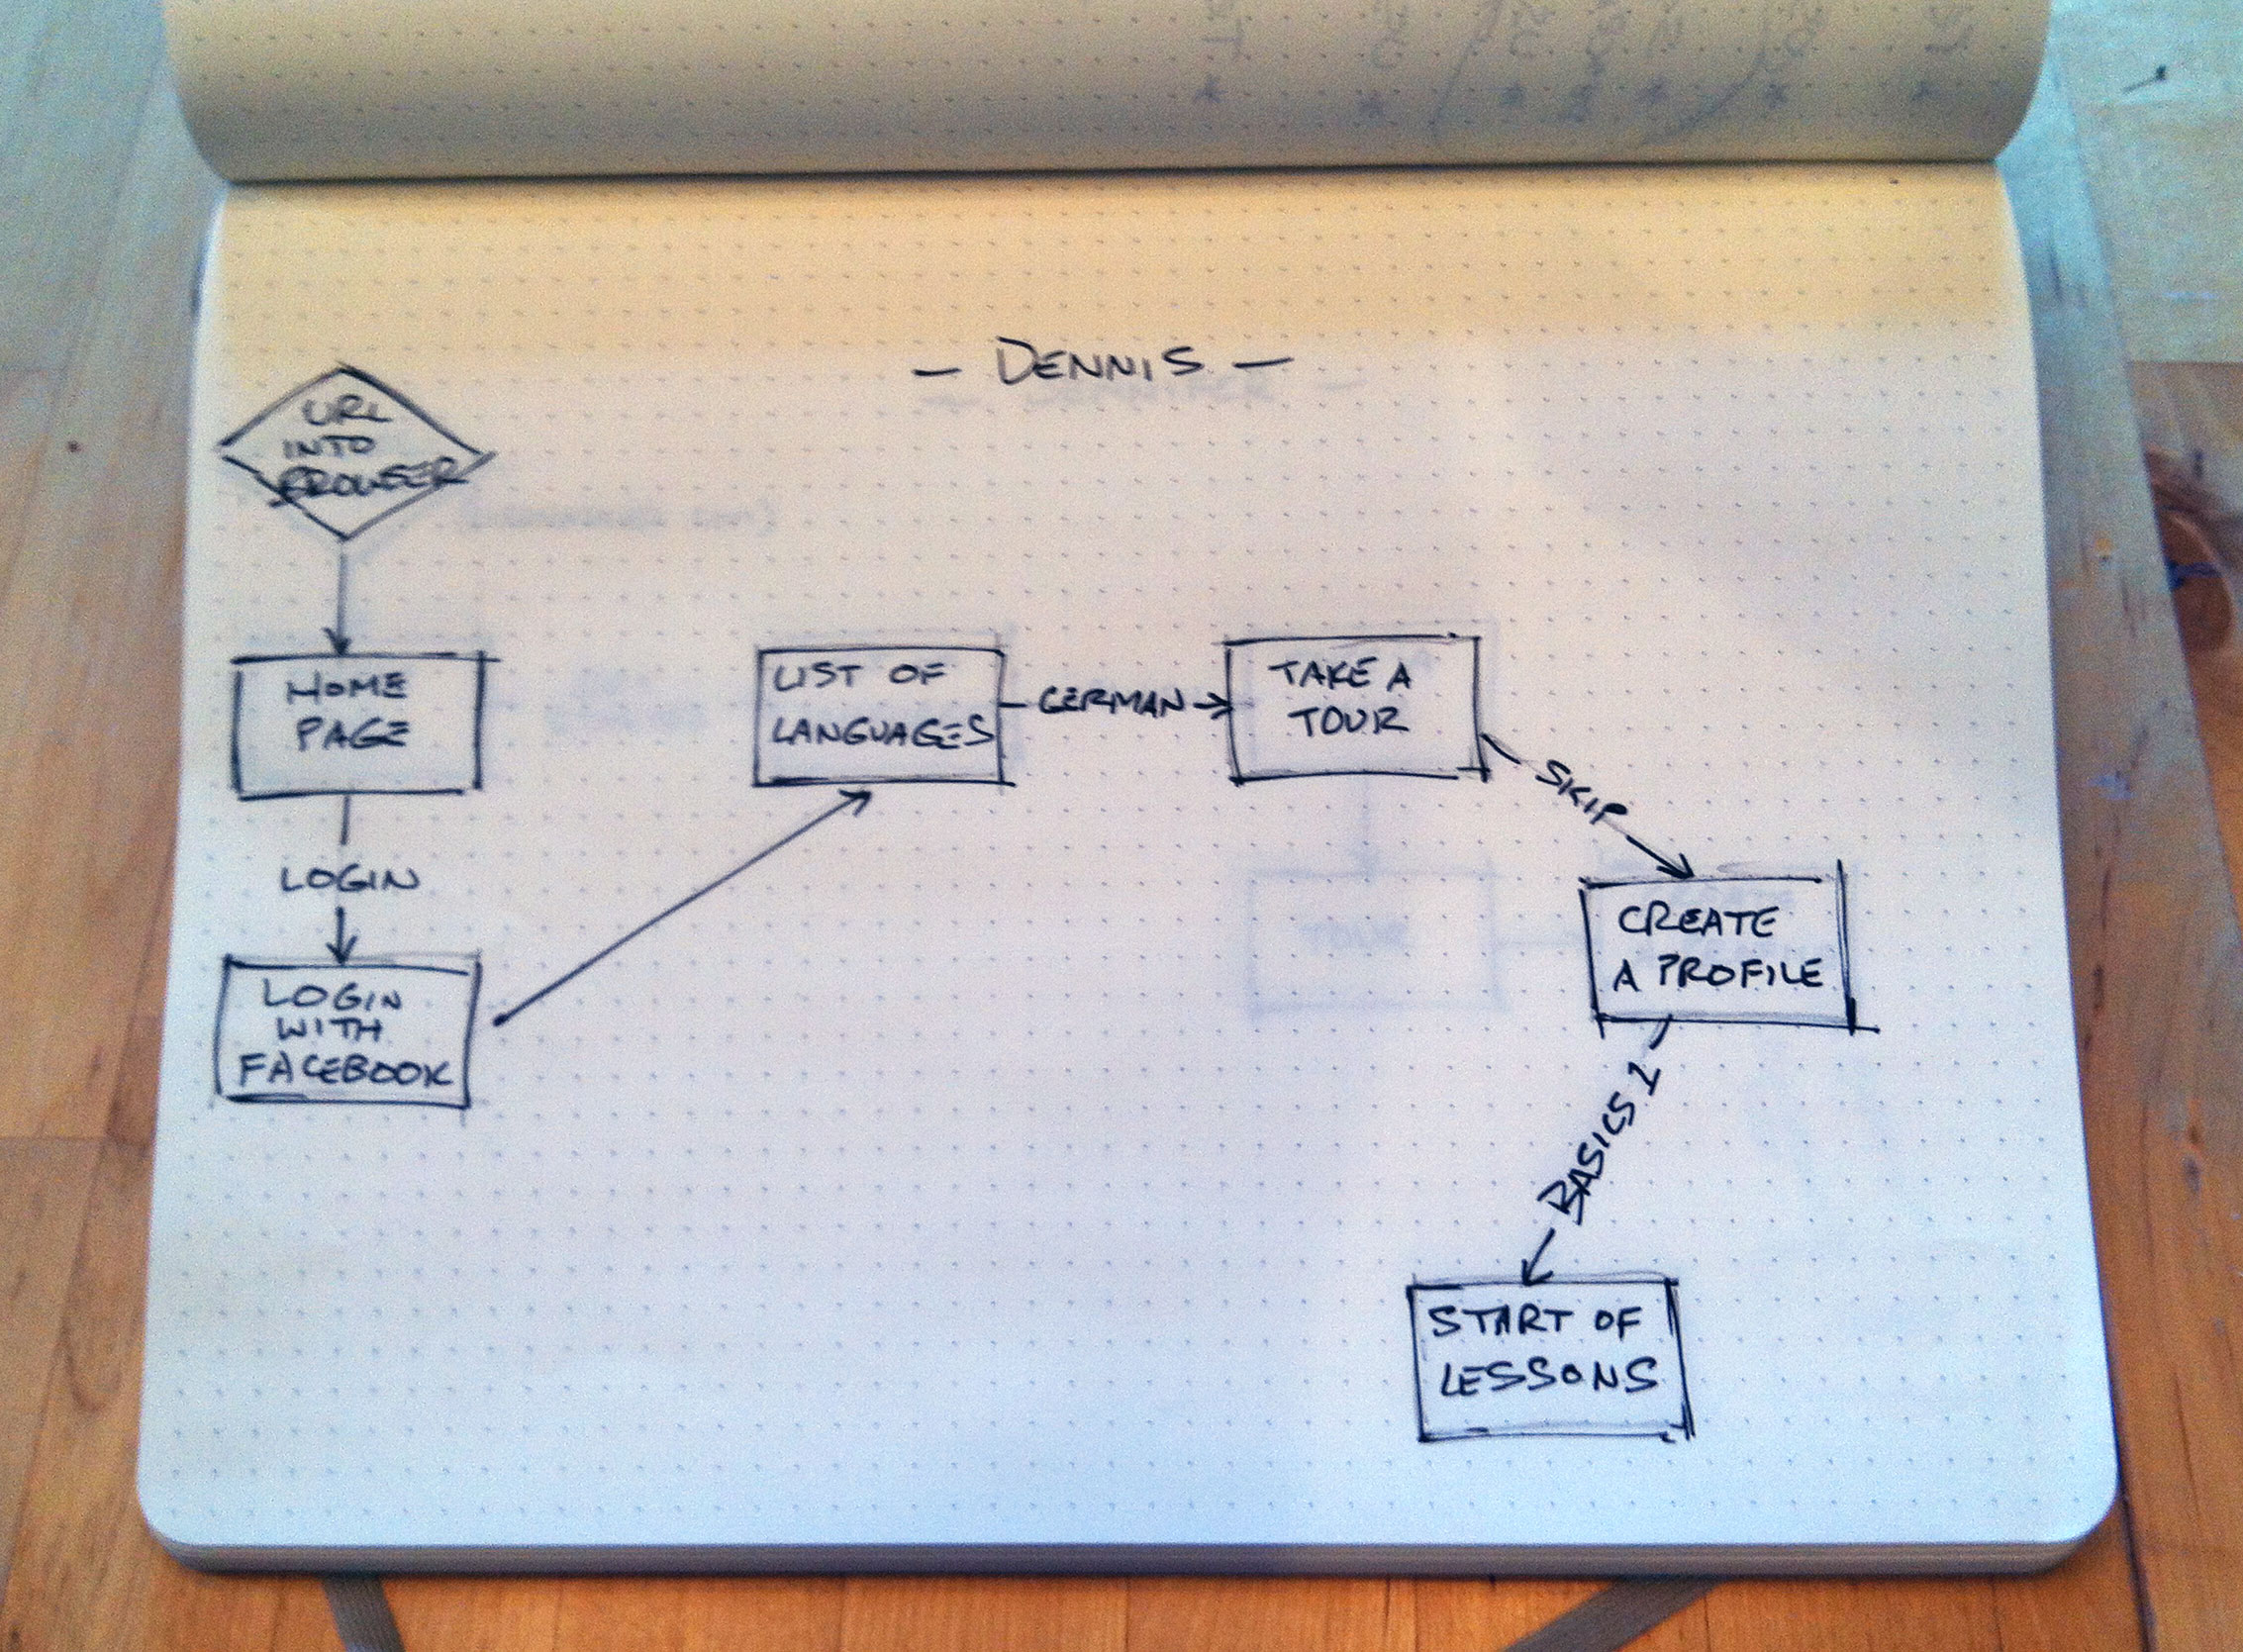 — DENNIS —
URL
INTO
BROWSER
HOME
PAGE
LOGIN
LOGIN
WITH
FACEBOOK
LIST OF
LANGUAGES
GERMAN
TAKE A
TOUR
SKIP
CREATE
A PROFILE
BASICS 1
START OF
LESSONS
TOUR